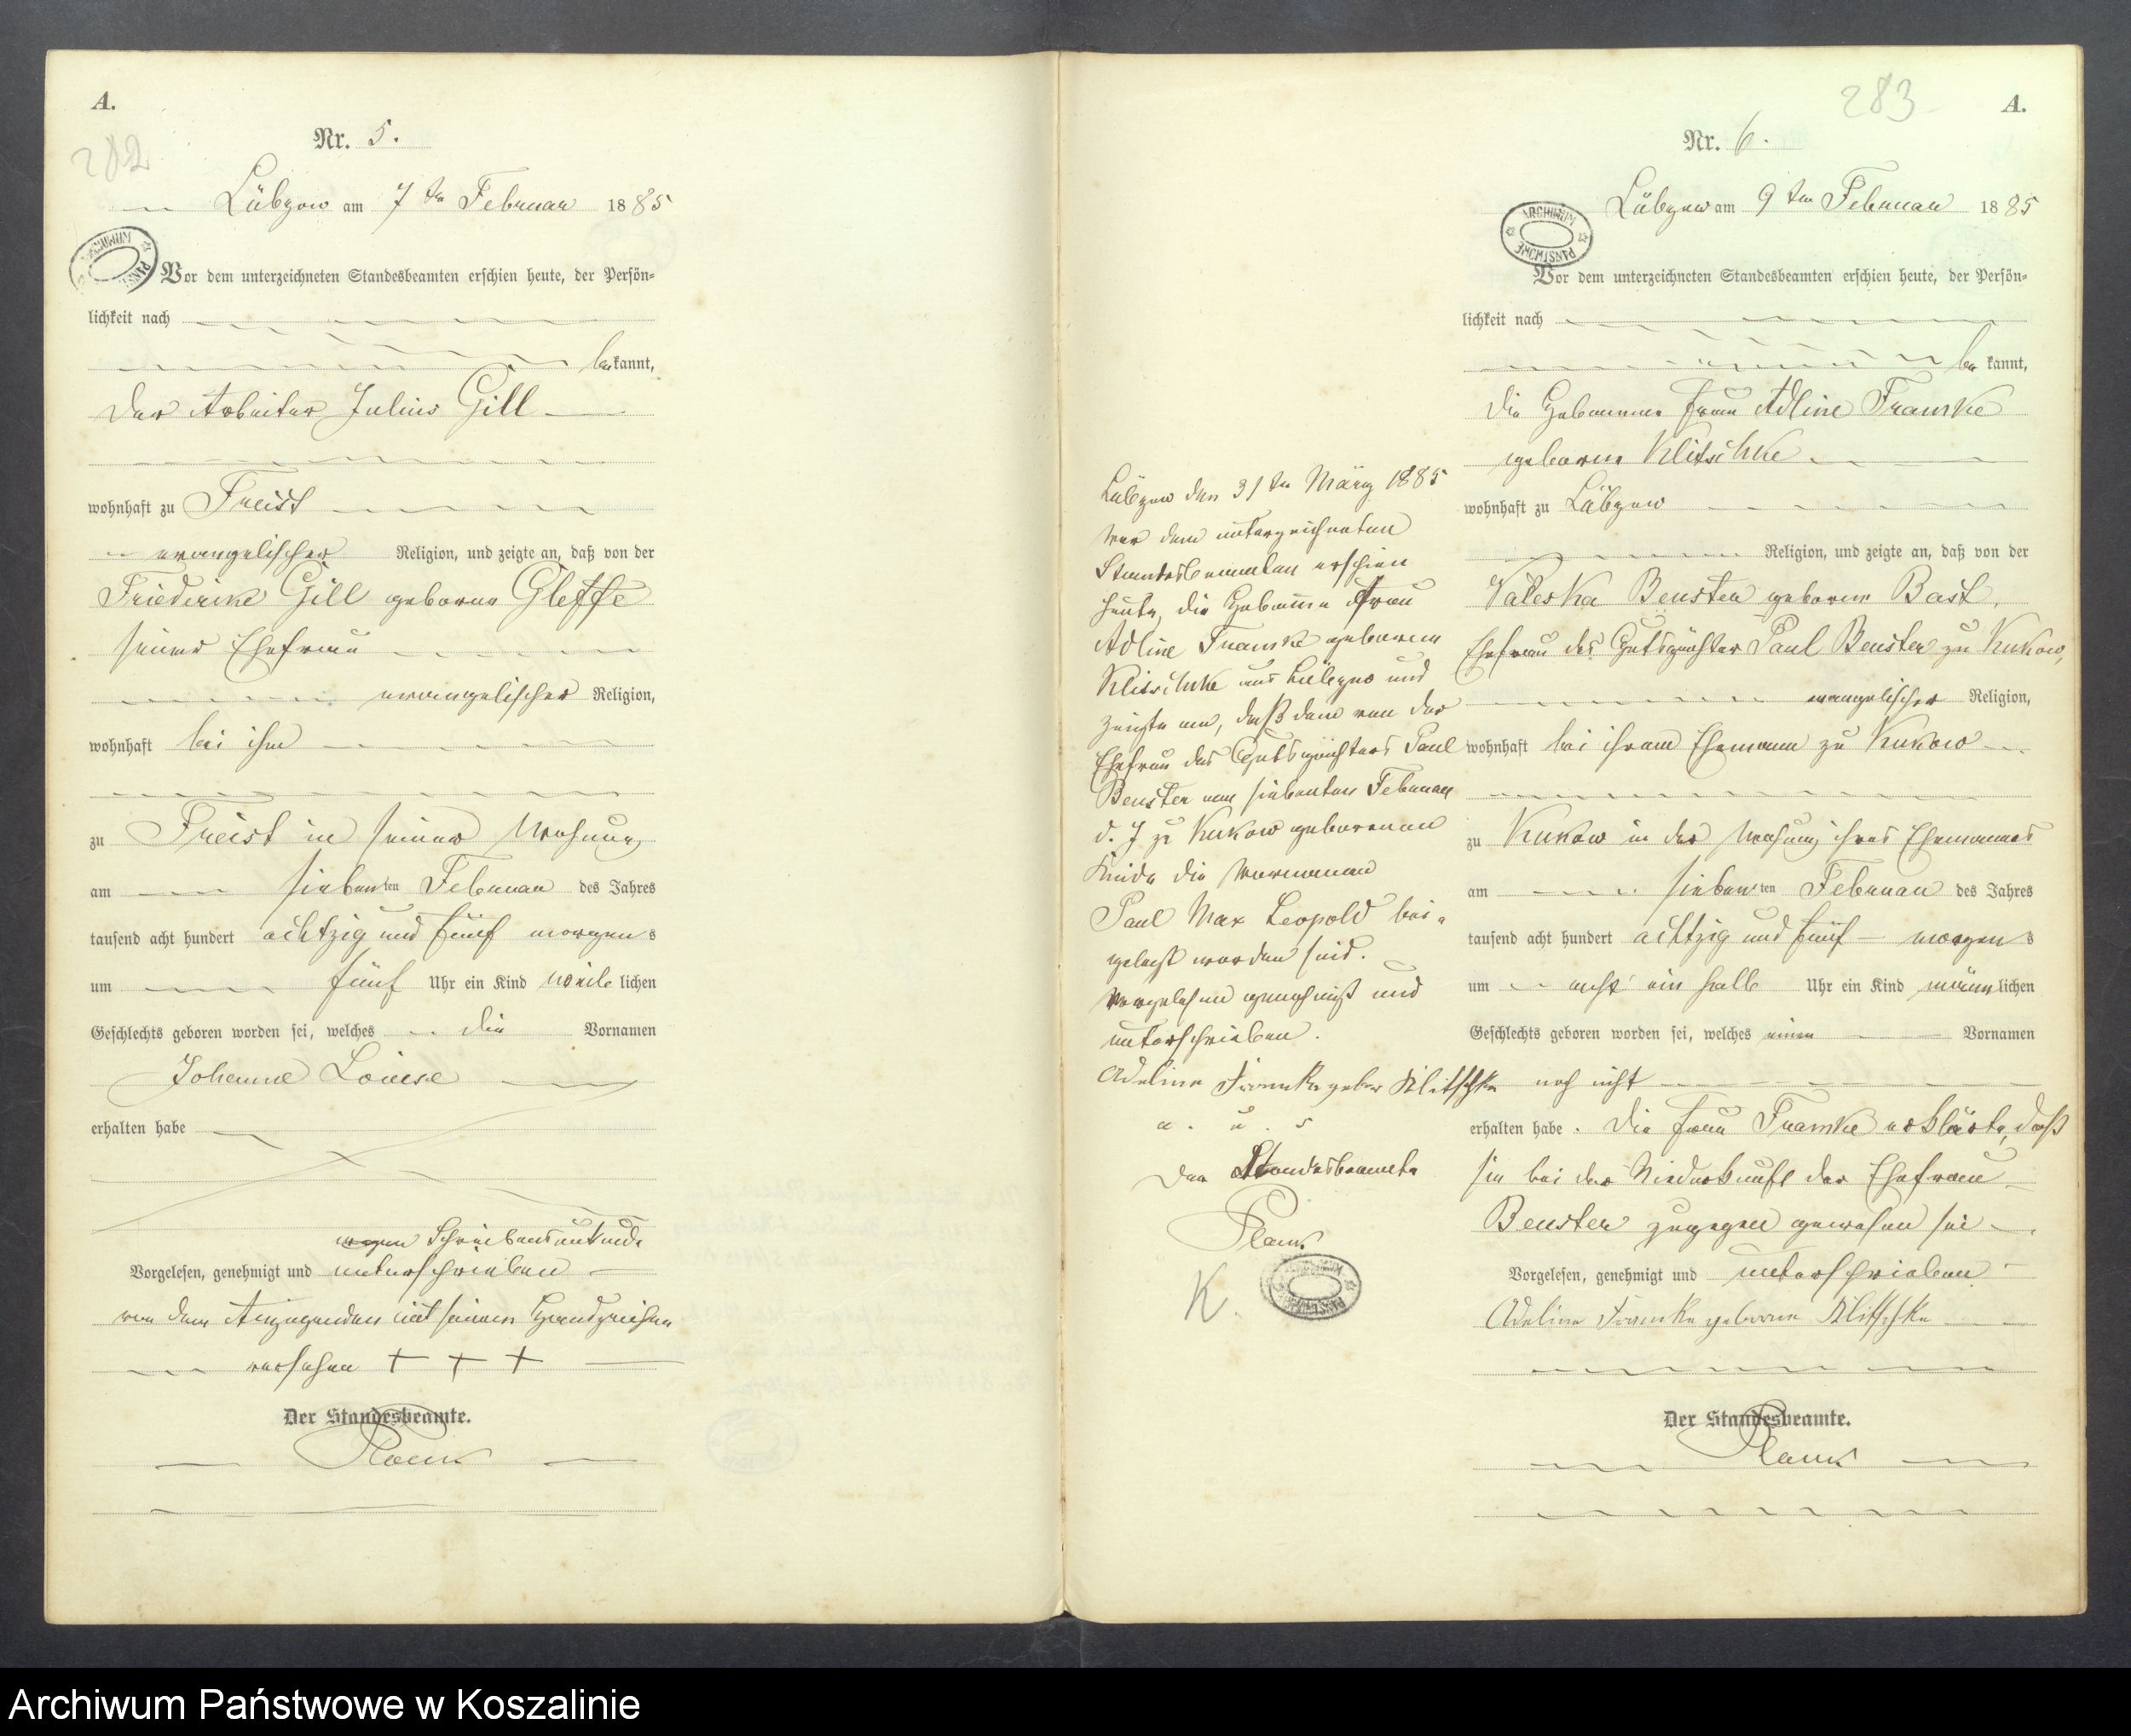 A.
282
Nr. 5.
Lübzow am 7 ten Februar 1885
Vor dem unterzeichneten Standesbeamten erschien heute, der Persön-
lichkeit nach
bekannt,
der Arbeiter Julius Gill
wohnhaft zu Freist
evangelischer Religion, und zeigte an, daß von der
Friederike Gill geborne Gleffe
seiner Ehefrau
evangelischer Religion,
wohnhaft bei ihm
zu Freist in seiner Wohnung
am siebenten Februar des Jahres
tausend acht hundert achtzig und fünf morgens
um fünf Uhr ein Kind weiblichen
Geschlechts geboren worden sei, welches die Vornamen
Johanne Louise
erhalten habe
wegen Schreibensunkunde
Vorgelesen, genehmigt und unterschrieben
von dem Anzeigenden mit seinem Handzeichen
versehen + + +
Der Standesbeamte.
Planck
Lübzow den 31 ten März 1885
Vor dem unterzeichneten
Standesbeamten erschien
heute, die Hebamme Frau
Adline Framke geborene
Klitschke aus Lübzow und
zeigte an, daß dem von der
Ehefrau des Gutspächters Paul
Benster am siebenten Februar
d. J zu Kukow geborenen
Kinde die Vornamen
Paul Max Leopold bei-
gelegt worden sind.
Vorgelesen genehmigt und
unterschrieben.
Adeline Framke gebor Klitschke
a. u. s
Der Standesbeamte
Planck
K.
283
A.
Nr. 6.
Lübzow am 9 ten Februar 1885
ARCHIWUM PAŃSTWOWE
Vor dem unterzeichneten Standesbeamten erschien heute, der Persön-
lichkeit nach
bekannt,
die Hebamme Frau Adline Framke
geborne Klitschke
wohnhaft zu Lübzow
Religion, und zeigte an, daß von der
Valeska Benster geborne Bast,
Ehefrau des Gutspächter Paul Benster zu Kukow,
evangelischer Religion,
wohnhaft bei ihrem Ehemann zu Kukow
zu Kukow in der Wohnung ihres Ehemannes
am siebenten Februar des Jahres
tausend acht hundert achtzig und fünf morgens
um acht ein halb Uhr ein Kind männlichen
Geschlechts geboren worden sei, welches einen Vornamen
noch nicht
erhalten habe. Die Frau Framke erklärte, daß
sie bei der Niederkunft der Ehefrau
Benster zugegen gewesen sei.
Vorgelesen, genehmigt und unterschrieben
Adeline Framke geborne Klitschke
Der Standesbeamte.
Planck
Archiwum Państwowe w Koszalinie